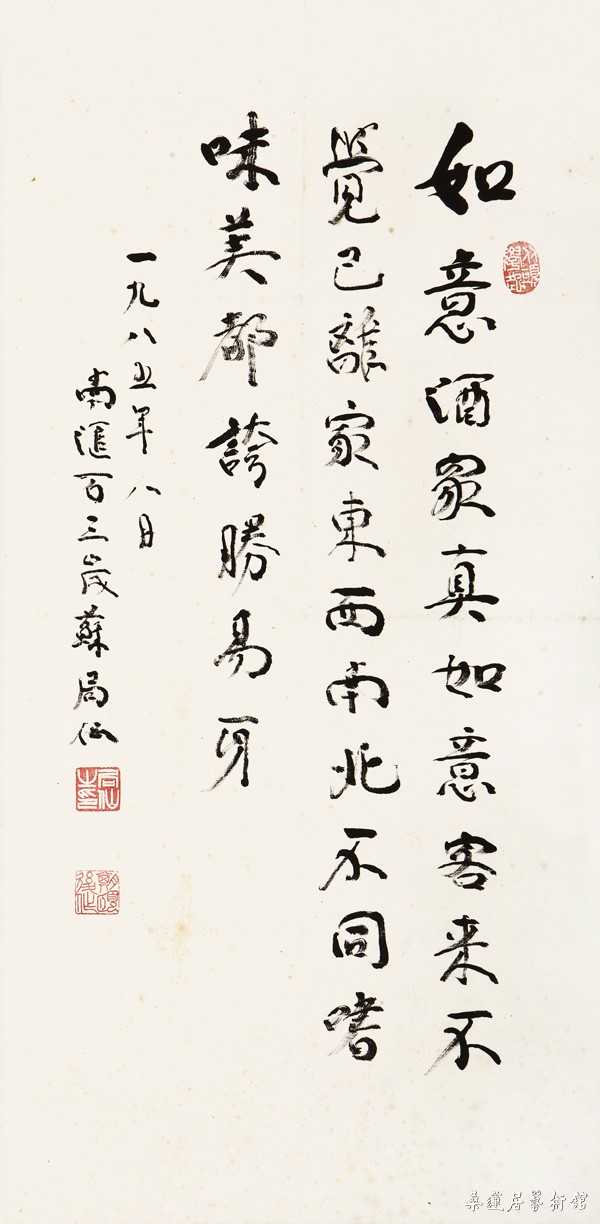 如意酒家真如意客来不
覺已離家東西南北不同嗜
味美都誇勝易牙
一九八五年八月
南滙百三歲蘇局仙
桑蓮居藝術館